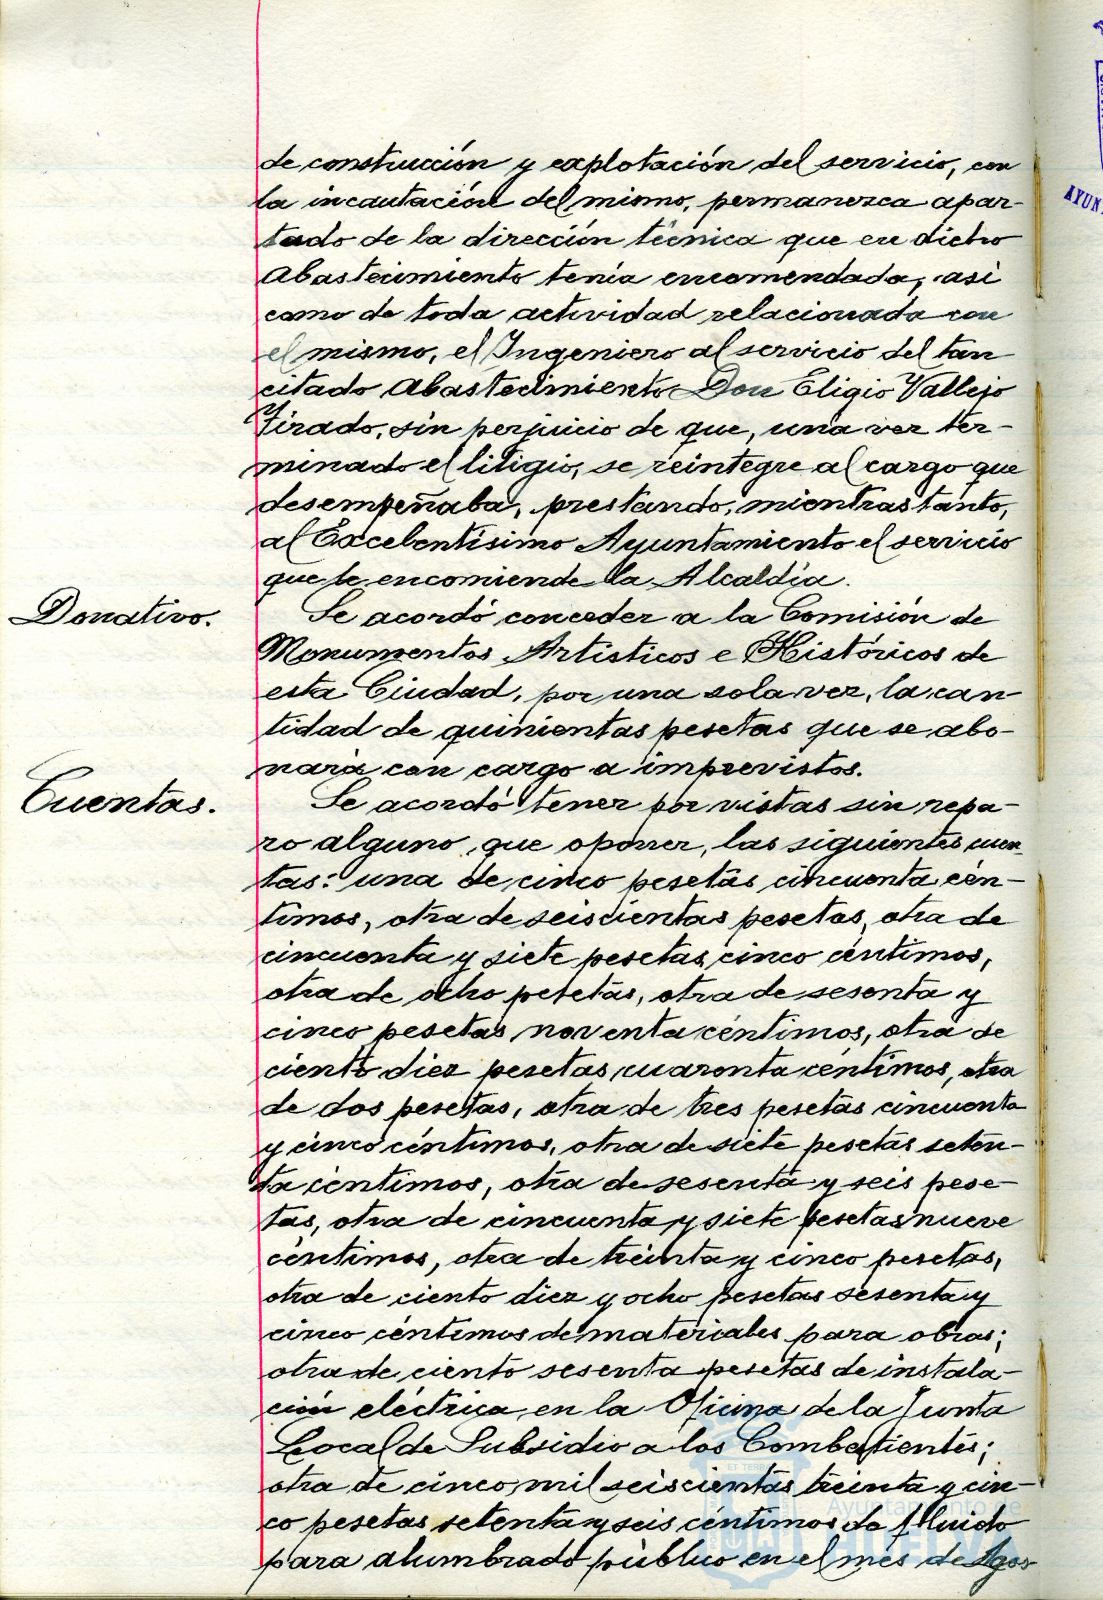 de construcción y explotación del servicio, con
la incautación del mismo, permanezca apar-
tado de la dirección técnica que en dicho
Abastecimiento tenía encomendada, así
como de toda actividad relacionada con
el mismo, el Ingeniero al servicio del tan
citado Abastecimiento Don Eligio Vallejo
Tirado, sin perjuicio de que, una vez ter-
minado el litigio, se reintegre al cargo que
desempeñaba, prestando, mientras tanto,
al Excelentísimo Ayuntamiento el servicio
que le encomiende la Alcaldía.
Donativo.
Se acordó conceder a la Comisión de
Monumentos Artísticos e Históricos de
esta Ciudad, por una sola vez, la can-
tidad de quinientas pesetas que se abo-
nará con cargo a imprevistos.
Cuentas.
Se acordó tener por vistas sin repa-
ro alguno que oponer, las siguientes cuen-
tas: una de cinco pesetas cincuenta cén-
timos, otra de seiscientas pesetas, otra de
cincuenta y siete pesetas cinco céntimos,
otra de ocho pesetas, otra de sesenta y
cinco pesetas noventa céntimos, otra de
ciento diez pesetas cuaronta céntimos, otra
de dos pesetas, otra de tres pesetas cincuenta
y cinco céntimos, otra de siete pesetas seten-
ta céntimos, otra de sesenta y seis pese-
tas, otra de cincuenta y siete pesetas nueve
céntimos, otra de treinta y cinco pesetas,
otra de ciento diez y ocho pesetas sesenta y
cinco céntimos de materiales para obras;
otra de ciento sesenta pesetas de instala-
ción eléctrica en la Oficina de la Junta
Local de Subsidio a los Combatientes;
otra de cinco mil seiscientas treinta y cin-
co pesetas setenta y seis céntimos de fluido
para alumbrado público en el mes de Agos-
Ayuntamiento de
HUELVA
AYUN